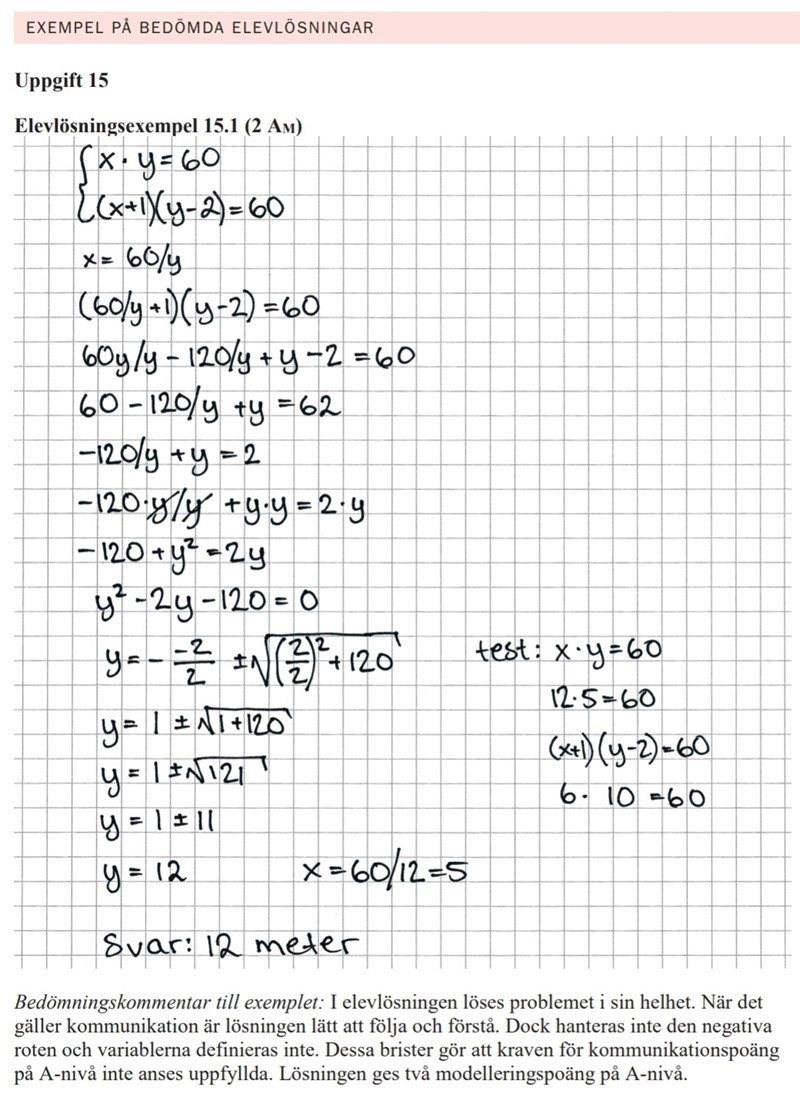 EXEMPEL PÅ BEDÖMDA ELEVLÖSNINGAR
Uppgift 15
Elevlösningsexempel 15.1 (2 AM)
{x · y = 60
{(x+1)(y-2) = 60
x = 60/y
(60/y +1)(y-2) = 60
60y/y - 120/y + y - 2 = 60
60 - 120/y + y = 62
-120/y + y = 2
-120·y/y + y·y = 2·y
-120 + y² = 2y
y² - 2y - 120 = 0
y = - -2/2 ± √((2/2)² + 120)
test: x · y = 60
12·5 = 60
y = 1 ± √1+120
(x+1)(y-2) = 60
y = 1 ± √121
6 · 10 = 60
y = 1 ± 11
y = 12 x = 60/12 = 5
Svar: 12 meter
Bedömningskommentar till exemplet: I elevlösningen löses problemet i sin helhet. När det
gäller kommunikation är lösningen lätt att följa och förstå. Dock hanteras inte den negativa
roten och variablerna definieras inte. Dessa brister gör att kraven för kommunikationspoäng
på A-nivå inte anses uppfyllda. Lösningen ges två modelleringspoäng på A-nivå.